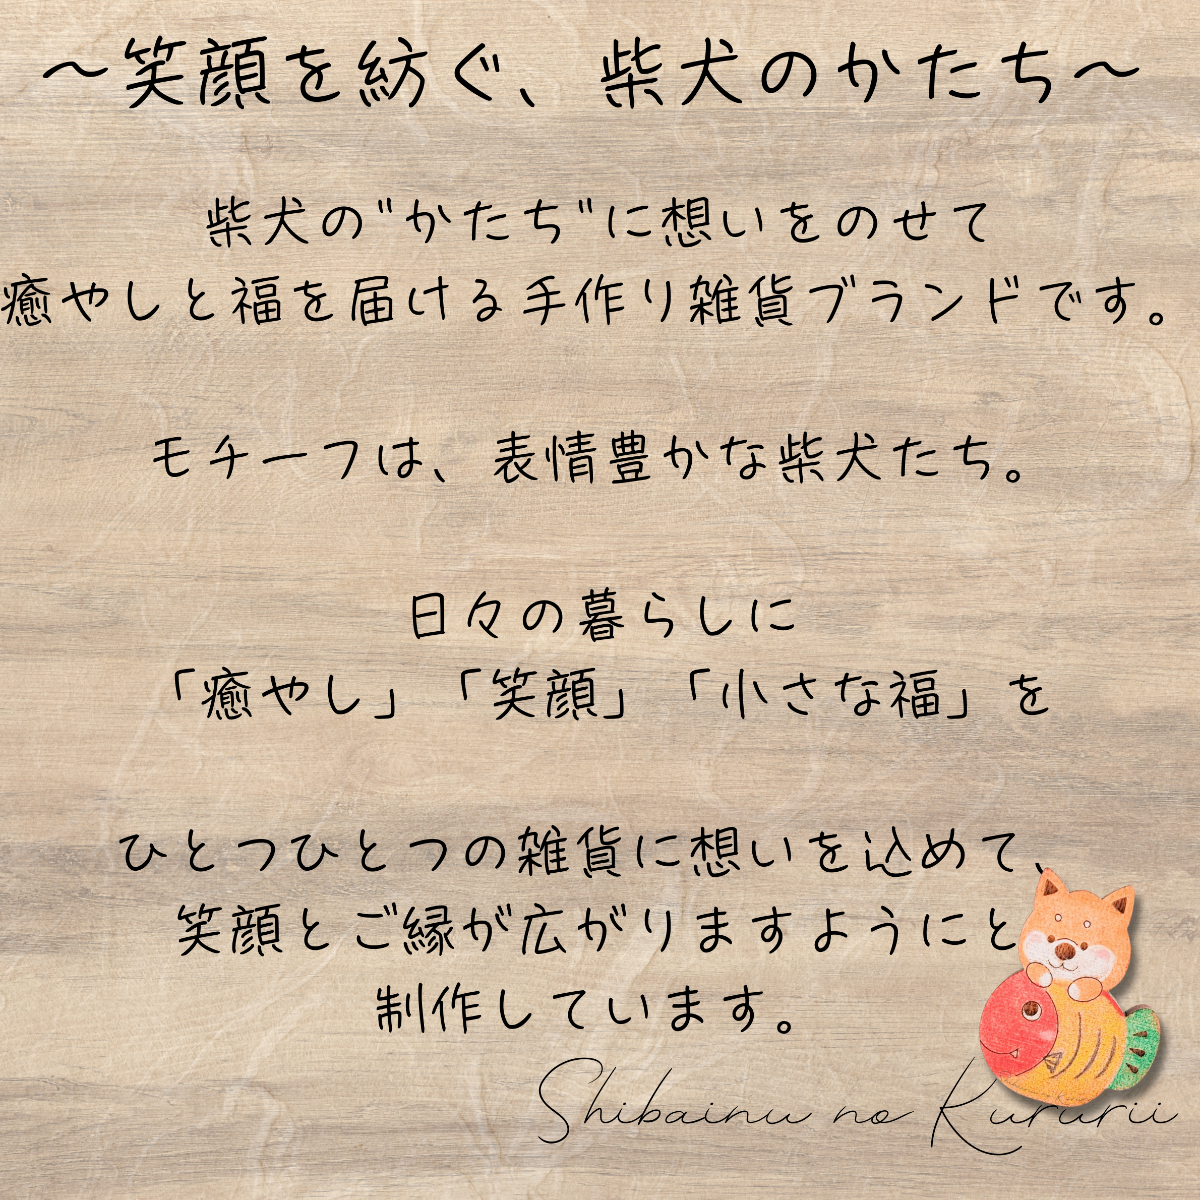 ～笑顔を紡ぐ、柴犬のかたち～
柴犬の"かたち"に想いをのせて
癒やしと福を届ける手作り雑貨ブランドです。
モチーフは、表情豊かな柴犬たち。
日々の暮らしに
「癒やし」「笑顔」「小さな福」を
ひとつひとつの雑貨に想いを込めて、
笑顔とご縁が広がりますようにと
制作しています。
Shibainu no Kururii